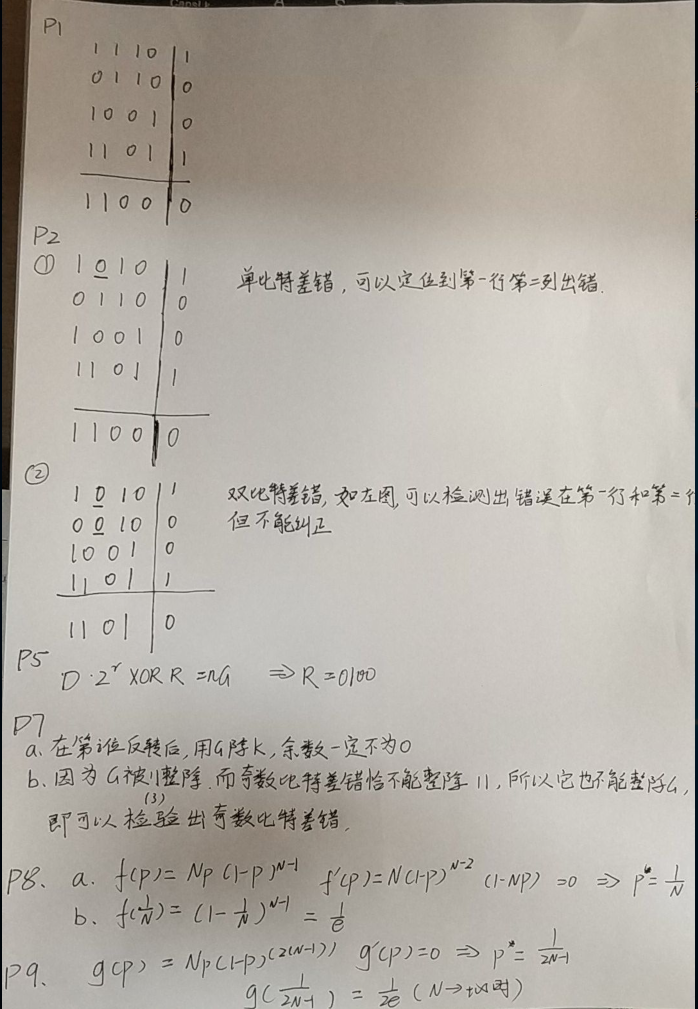 P1
1 1 1 0 | 1
0 1 1 0 | 0
1 0 0 1 | 0
1 1 0 1 | 1
1 1 0 0 | 0
P2
① 1 0 1 0 | 1 单比特差错，可以定位到第一行第二列出错.
0 1 1 0 | 0
1 0 0 1 | 0
1 1 0 1 | 1
1 1 0 0 | 0
②
1 0 1 0 | 1 双比特差错, 如左图, 可以检测出错误在第一行和第二行
0 0 1 0 | 0 但不能纠正
1 0 0 1 | 0
1 1 0 1 | 1
1 1 0 1 | 0
P5
D·2^r XOR R = nG ⇒ R = 0100
P7
a. 在第i位反转后, 用G除K, 余数一定不为0
b. 因为G被11整除, 而奇数比特差错恰不能整除 11, 所以它也不能整除G,
(3)
即可以检验出奇数比特差错.
P8. a. f(p) = Np(1-p)^{N-1} f'(p) = N(1-p)^{N-2} (1-NP) = 0 ⇒ p* = 1/N
b. f(1/N) = (1-1/N)^{N-1} = 1/e
P9. g(p) = Np(1-p)^{(2(N-1))} g'(p)=0 ⇒ p* = 1/(2N-1)
g(1/(2N-1)) = 1/2e (N→+∞时)